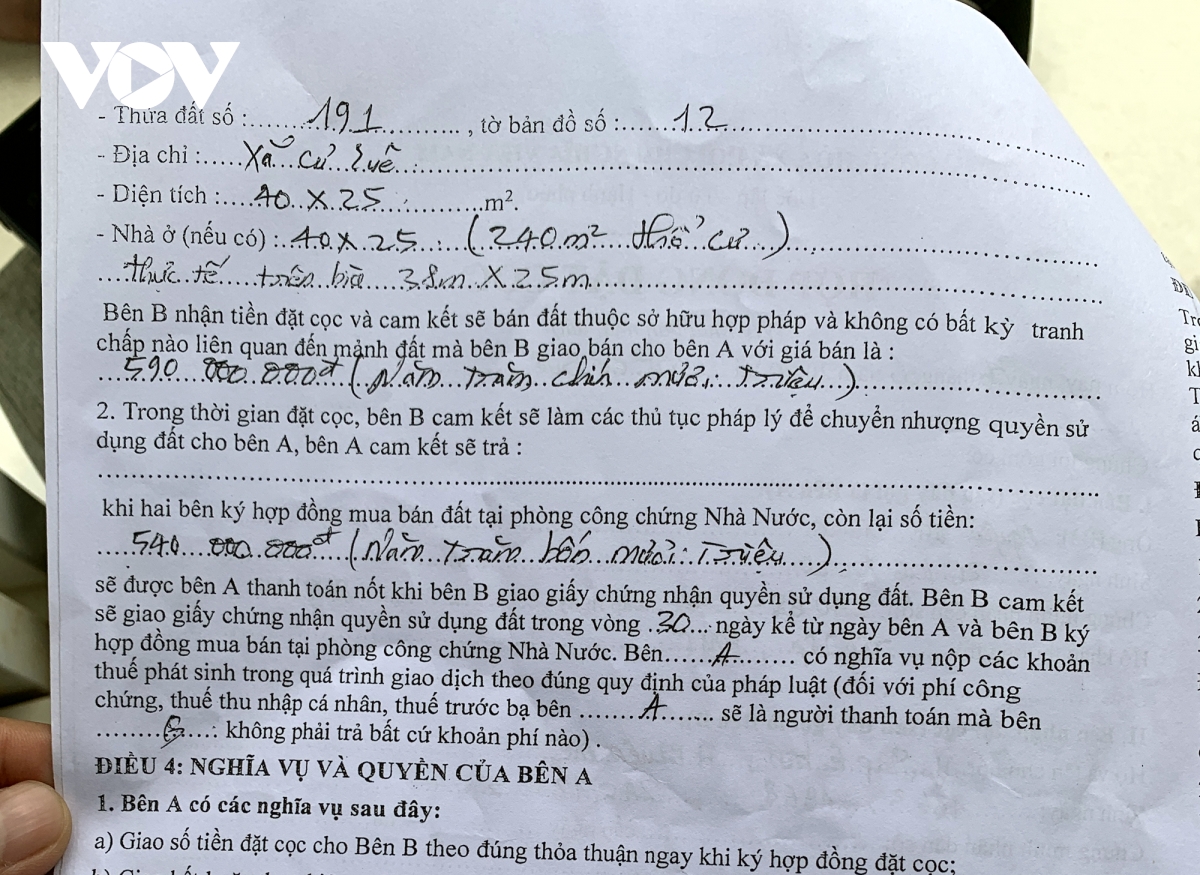 VOV
- Thửa đất số :......191............ , tờ bản đồ số :......12......
- Địa chỉ :.....Xã Cư Suê.......
- Diện tích :....40 X 25............m².
- Nhà ở (nếu có) :..40 X 25.....(240m² thổ cư)......
...thực tế trên bìa 38m X 25m......
Bên B nhận tiền đặt cọc và cam kết sẽ bán đất thuộc sở hữu hợp pháp và không có bất kỳ tranh
chấp nào liên quan đến mảnh đất mà bên B giao bán cho bên A với giá bán là :
....590 000 000đ (Năm trăm chín mươi triệu)......
2. Trong thời gian đặt cọc, bên B cam kết sẽ làm các thủ tục pháp lý để chuyển nhượng quyền sử
dụng đất cho bên A, bên A cam kết sẽ trả :
khi hai bên ký hợp đồng mua bán đất tại phòng công chứng Nhà Nước, còn lại số tiền:
....540 000 000đ (Năm trăm bốn mươi Triệu)......
sẽ được bên A thanh toán nốt khi bên B giao giấy chứng nhận quyền sử dụng đất. Bên B cam kết
sẽ giao giấy chứng nhận quyền sử dụng đất trong vòng .30... ngày kể từ ngày bên A và bên B ký
hợp đồng mua bán tại phòng công chứng Nhà Nước. Bên......A........ có nghĩa vụ nộp các khoản
thuế phát sinh trong quá trình giao dịch theo đúng quy định của pháp luật (đối với phí công
chứng, thuế thu nhập cá nhân, thuế trước bạ bên ........A....... sẽ là người thanh toán mà bên
........B....: không phải trả bất cứ khoản phí nào) .
ĐIỀU 4: NGHĨA VỤ VÀ QUYỀN CỦA BÊN A
1. Bên A có các nghĩa vụ sau đây:
a) Giao số tiền đặt cọc cho Bên B theo đúng thỏa thuận ngay khi ký hợp đồng đặt cọc;